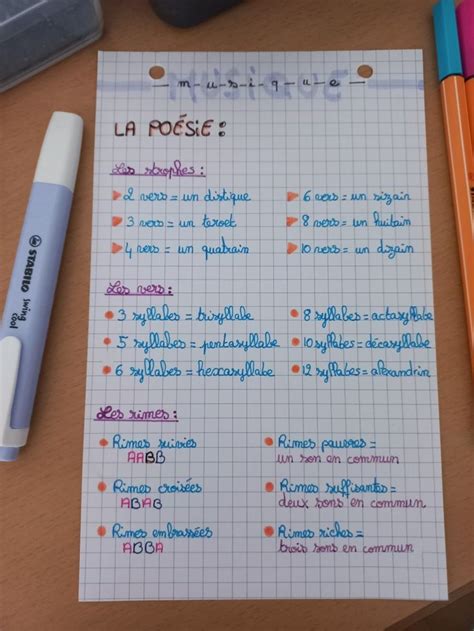 m-u-s-i-q-u-e
LA POÉSIE :
Les strophes :
2 vers = un distique
3 vers = un tercet
4 vers = un quatrain
6 vers = un sizain
8 vers = un huitain
10 vers = un dizain
Les vers :
3 syllabes = trisyllabe
5 syllabes = pentasyllabe
6 syllabes = hexasyllabe
8 syllabes = octasyllabe
10 syllabes = décasyllabe
12 syllabes = alexandrin
Les rimes :
Rimes suivies
AABB
Rimes croisées
ABAB
Rimes embrassées
ABBA
Rimes pauvres =
un son en commun
Rimes suffisantes =
deux sons en commun
Rimes riches =
trois sons en commun
STABILO
swing
cool